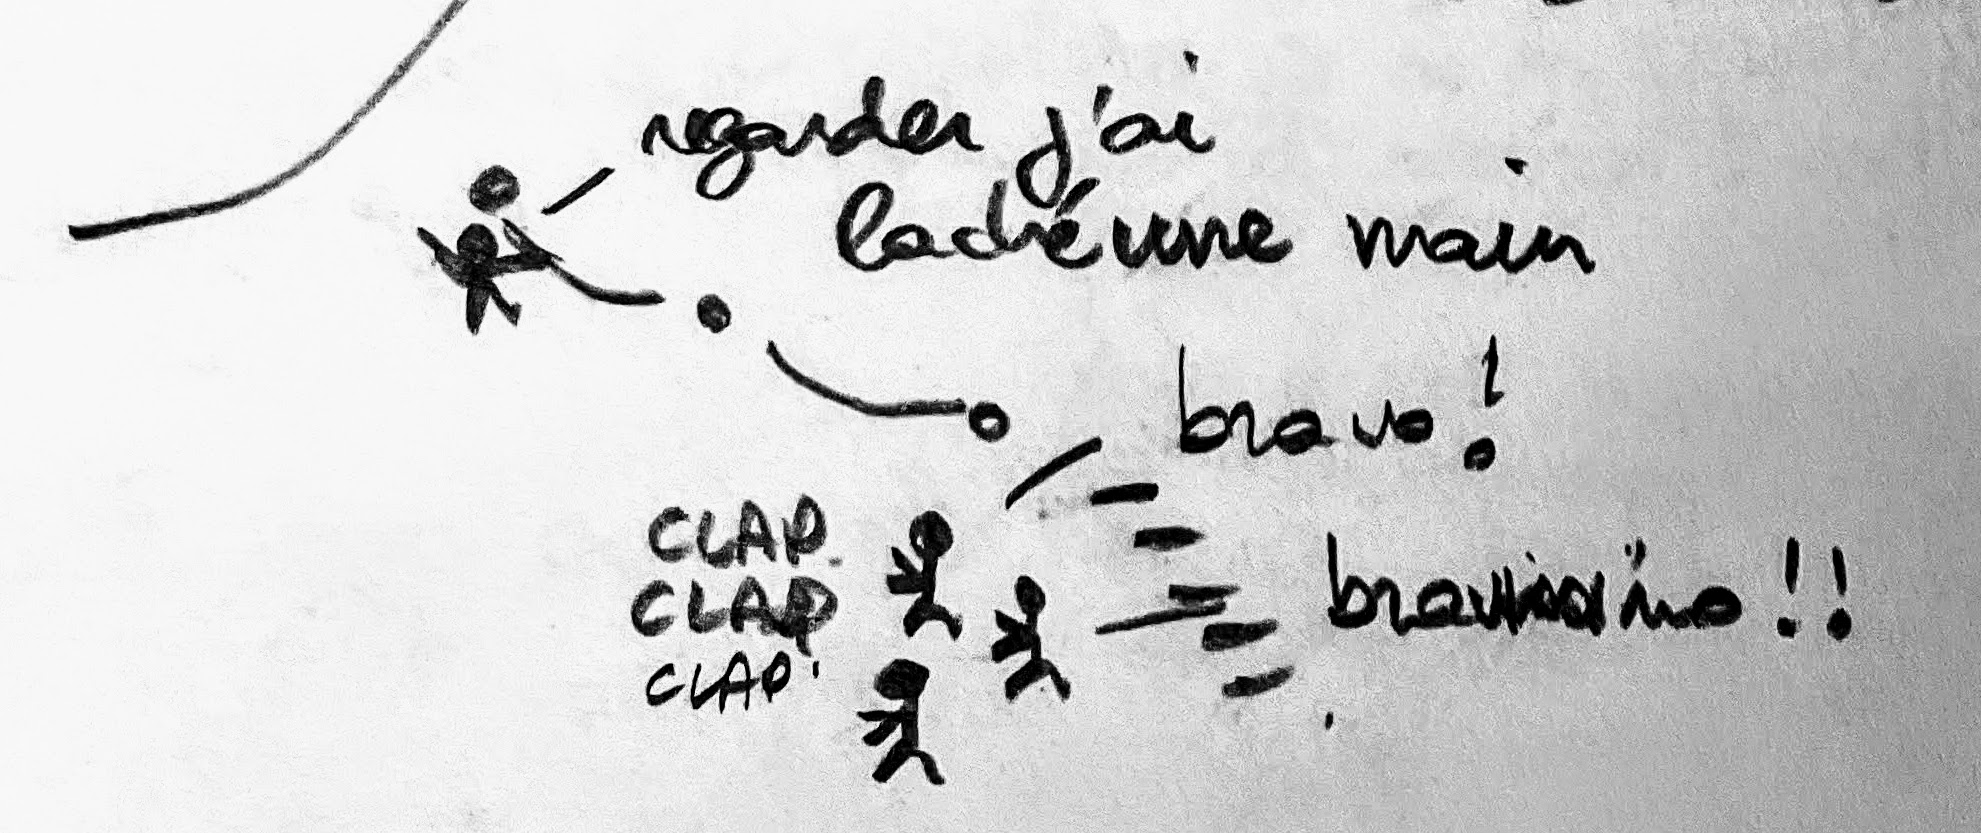 regarder j'ai
laché une main
bravo !
CLAP.
CLAP
CLAP.
bravissimo !!